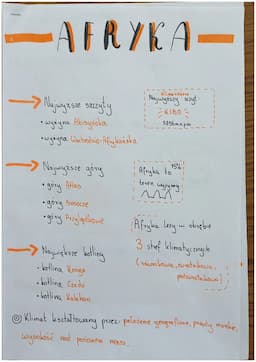 AFRYKA
Najwyższe szczyty
• wyżyna Abisyńska
• wyżyna Wschodnio-Afrykańska
Kilimandżaro
Najwyższy szczyt
KIBO
5895m n.p.m
Najwyższe góry
• góry Atlas
• góry Smocze
• góry Przylądkowe
75%
Afryki to
teren wyżynny
Afryka leży w obrębie
3 stref klimatycznych
(równikowa, zwrotnikowa,
podzwrotnikowa)
Największe kotliny
• kotlina Konga
• kotlina Czadu
• kotlina Kalahari
Klimat kształtowany przez: położenie geograficzne, prądy morskie,
wysokość nad poziomem morza.